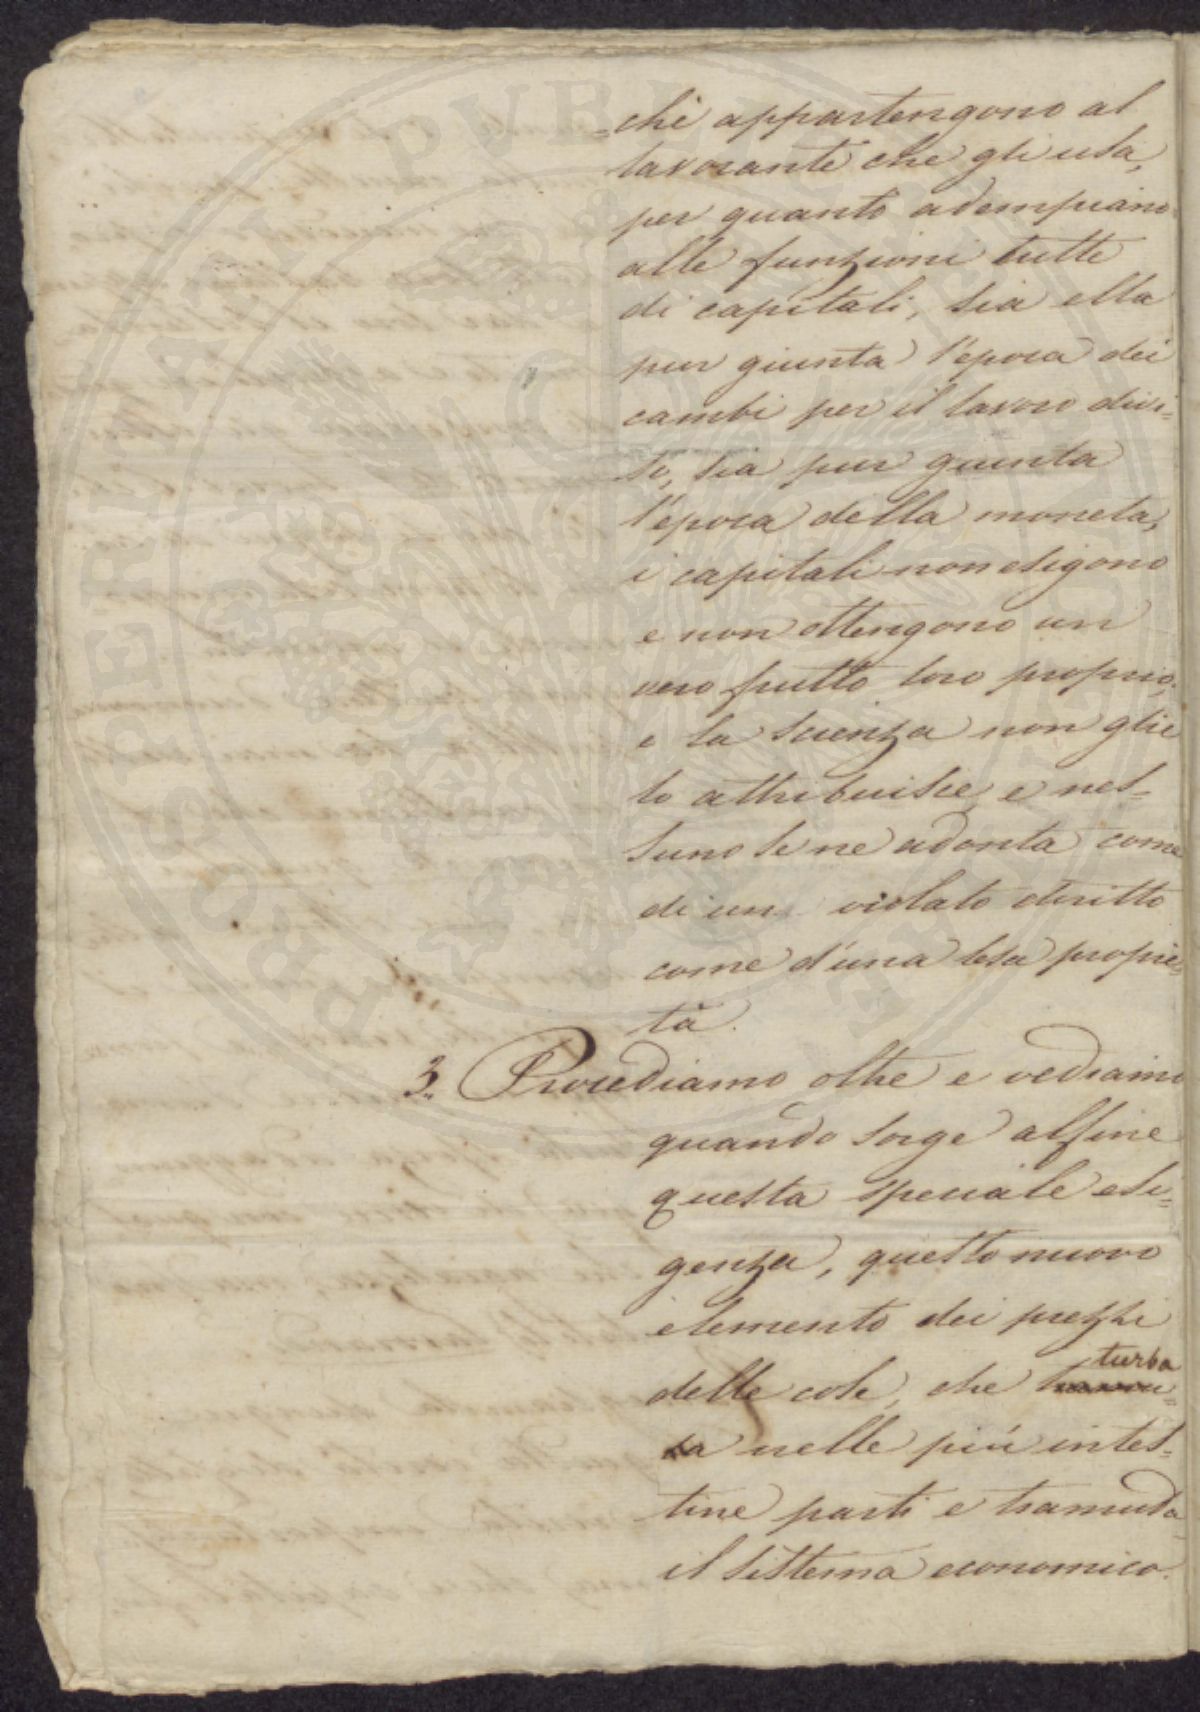 =chè appartengono al
lavorante che gli usa,
per quanto adempiano
alle funzioni tutte
di capitali, sia ella
pur giunta l'epoca dei
cambi per il lavoro divi=
so, sia pur giunta
l'epoca della moneta,
i capitali non esigono
e non ottengono un
vero frutto loro proprio,
e la scienza non glie
lo attribuisce, e nes=
suno se ne adonta come
di un violato diritto
come d'una lesa proprie=
tà.
3. Procediamo oltre e vediamo
quando sorge alfine
questa speciale esi=
genza, questo nuovo
elemento dei prezzi
turba
delle cose, che
nelle più intes=
tine parti e tramuta
il sistema economico.
PROSPERITATI PVBLICAE